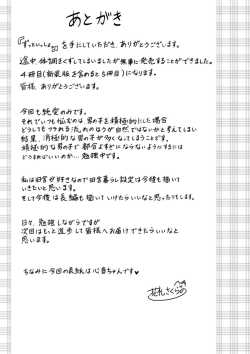 あとがき
『ずっといっしょ』を手にしていただき、ありがとうございます。
途中、体調をくずしてしまいましたが無事に発売することができました。
4冊目(新装版を含めると5冊目)になります。
皆様、ありがとうございます。
今回も純愛のみです。
それでいつも悩むのは男の子を積極的にした場合
どうしてもつかれる流れのほうが自然ではないかと考えてしまい
結果、消極的な男の子が多くなってしまうことです。
積極的な男の子で都合よすぎにならないようにするには
どうすればいいのか…勉強中です。
私は田舎が好きなので田舎暮らし設定は今後も描いて
いきたいと思います。
そして今後は長編も描いていけたらいいなと思ったりします。
日々、勉強しながらですが
次回はもっと進歩して皆様へお届けできたらいいなと
思います。
ちなみに今回の表紙は心音ちゃんです♥